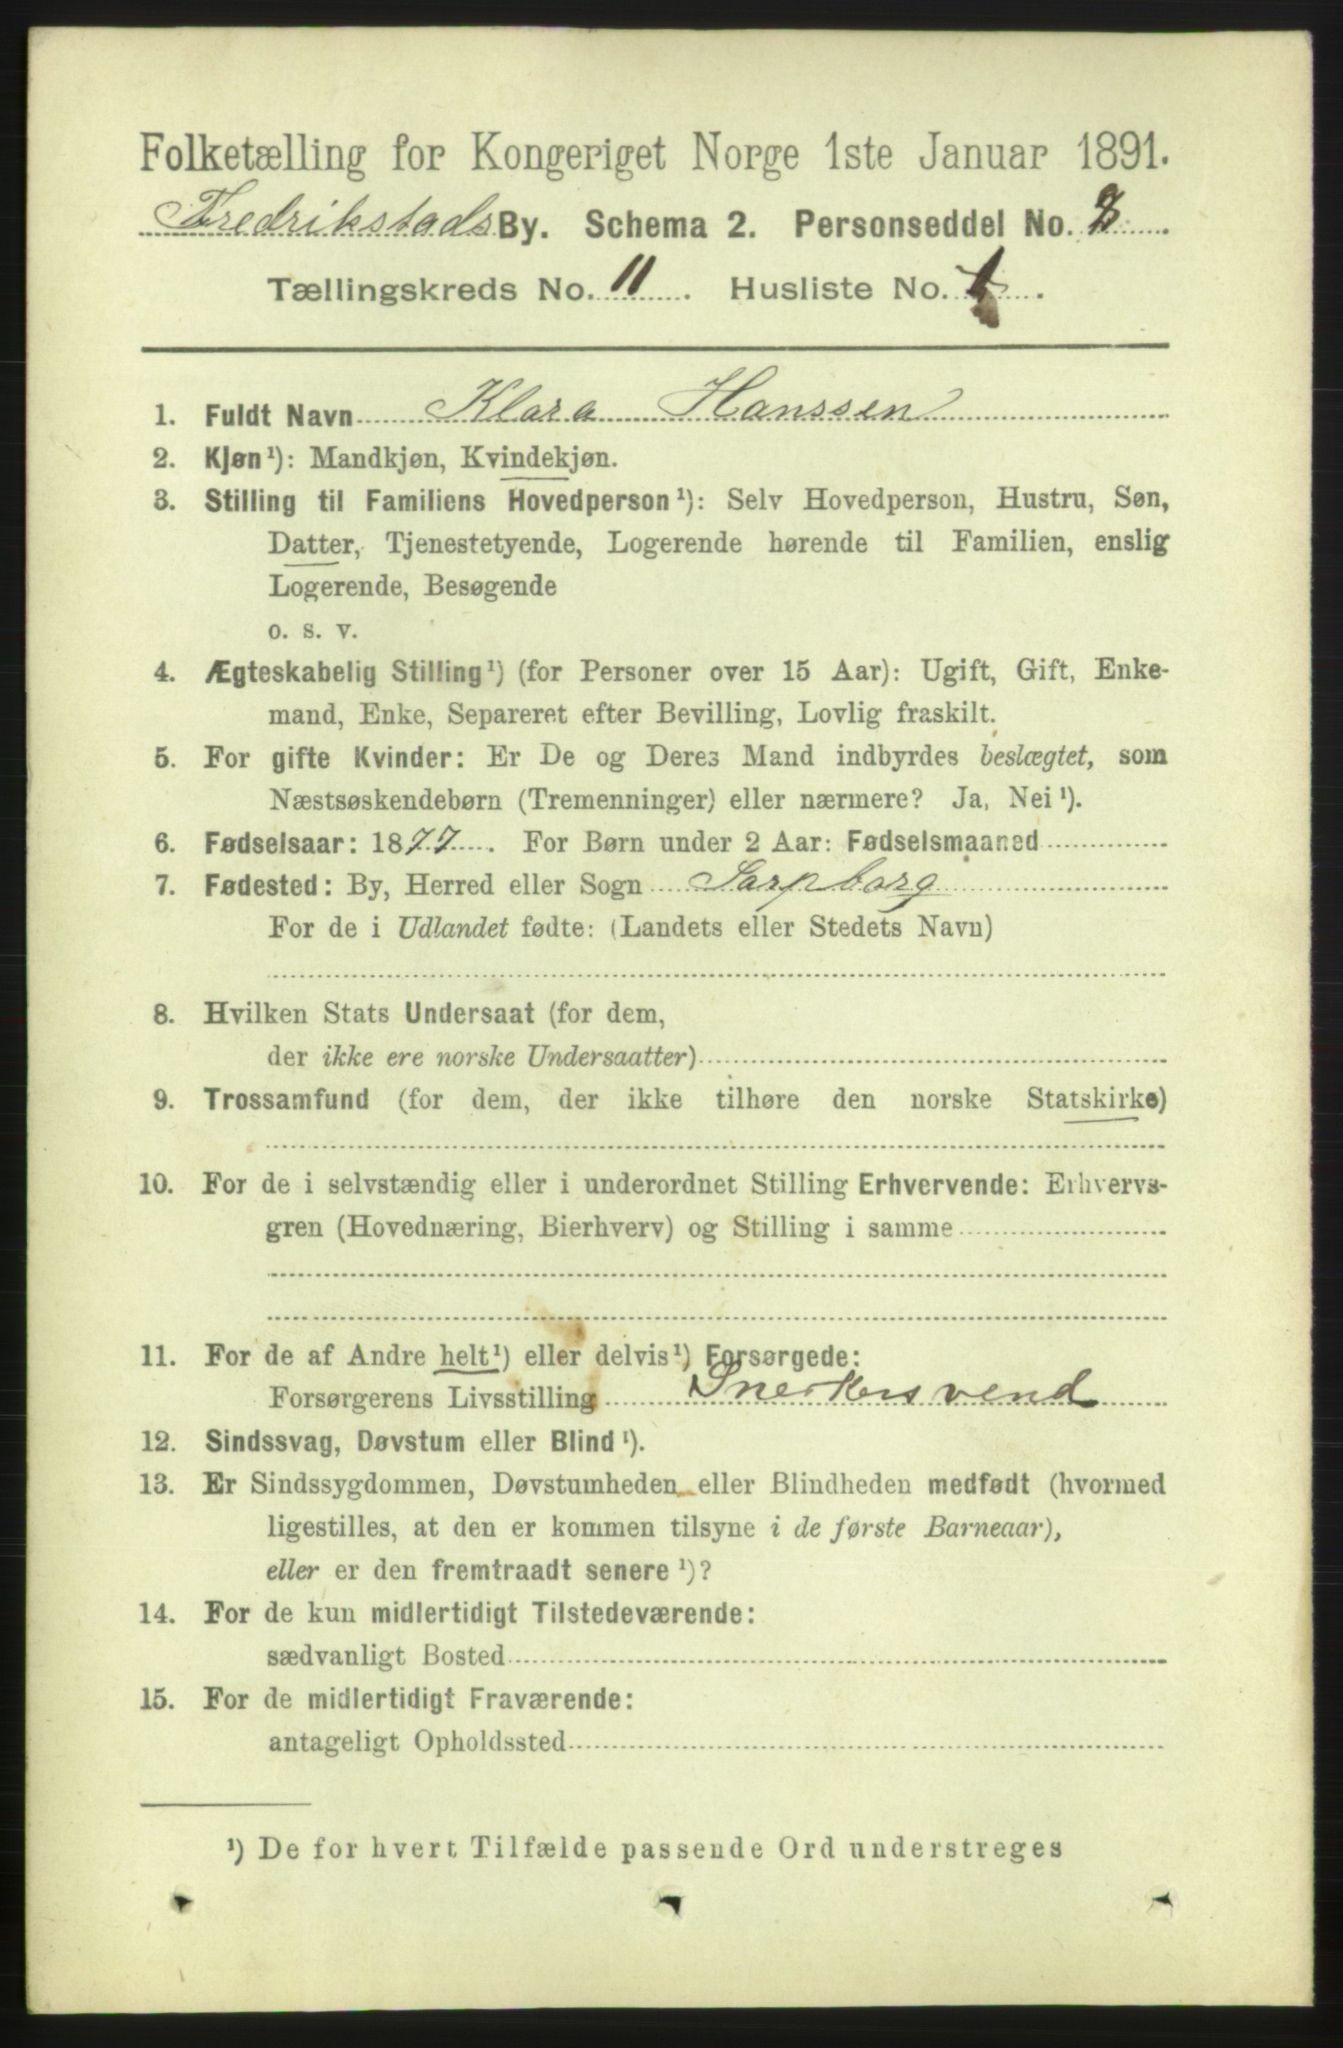 Folketælling for Kongeriget Norge 1ste Januar 1891.
Fredrikstads By. Schema 2. Personseddel No.
Tællingskreds No. 11. Husliste No. 1.
1. Fuldt Navn Klara Hanssen
2. Kjøn¹): Mandkjøn, Kvindekjøn.
3. Stilling til Familiens Hovedperson¹): Selv Hovedperson, Hustru, Søn,
Datter, Tjenestetyende, Logerende hørende til Familien, enslig
Logerende, Besøgende
o. s. v.
4. Ægteskabelig Stilling¹) (for Personer over 15 Aar): Ugift, Gift, Enke-
mand, Enke, Separeret efter Bevilling, Lovlig fraskilt.
5. For gifte Kvinder: Er De og Deres Mand indbyrdes beslægtet, som
Næstsøskendebørn (Tremenninger) eller nærmere? Ja, Nei¹).
6. Fødselsaar: 1877. For Børn under 2 Aar: Fødselsmaaned
7. Fødested: By, Herred eller Sogn Sarpborg
For de i Udlandet fødte: (Landets eller Stedets Navn)
8. Hvilken Stats Undersaat (for dem,
der ikke ere norske Undersaatter)
9. Trossamfund (for dem, der ikke tilhøre den norske Statskirke)
10. For de i selvstændig eller i underordnet Stilling Erhvervende: Erhvervs-
gren (Hovednæring, Bierhverv) og Stilling i samme
11. For de af Andre helt¹) eller delvis¹) Forsørgede:
Forsørgerens Livsstilling Snedkersvend
12. Sindssvag, Døvstum eller Blind¹).
13. Er Sindssygdommen, Døvstumheden eller Blindheden medfødt (hvormed
ligestilles, at den er kommen tilsyne i de første Barneaar),
eller er den fremtraadt senere¹)?
14. For de kun midlertidigt Tilstedeværende:
sædvanligt Bosted
15. For de midlertidigt Fraværende:
antageligt Opholdssted
¹) De for hvert Tilfælde passende Ord understreges